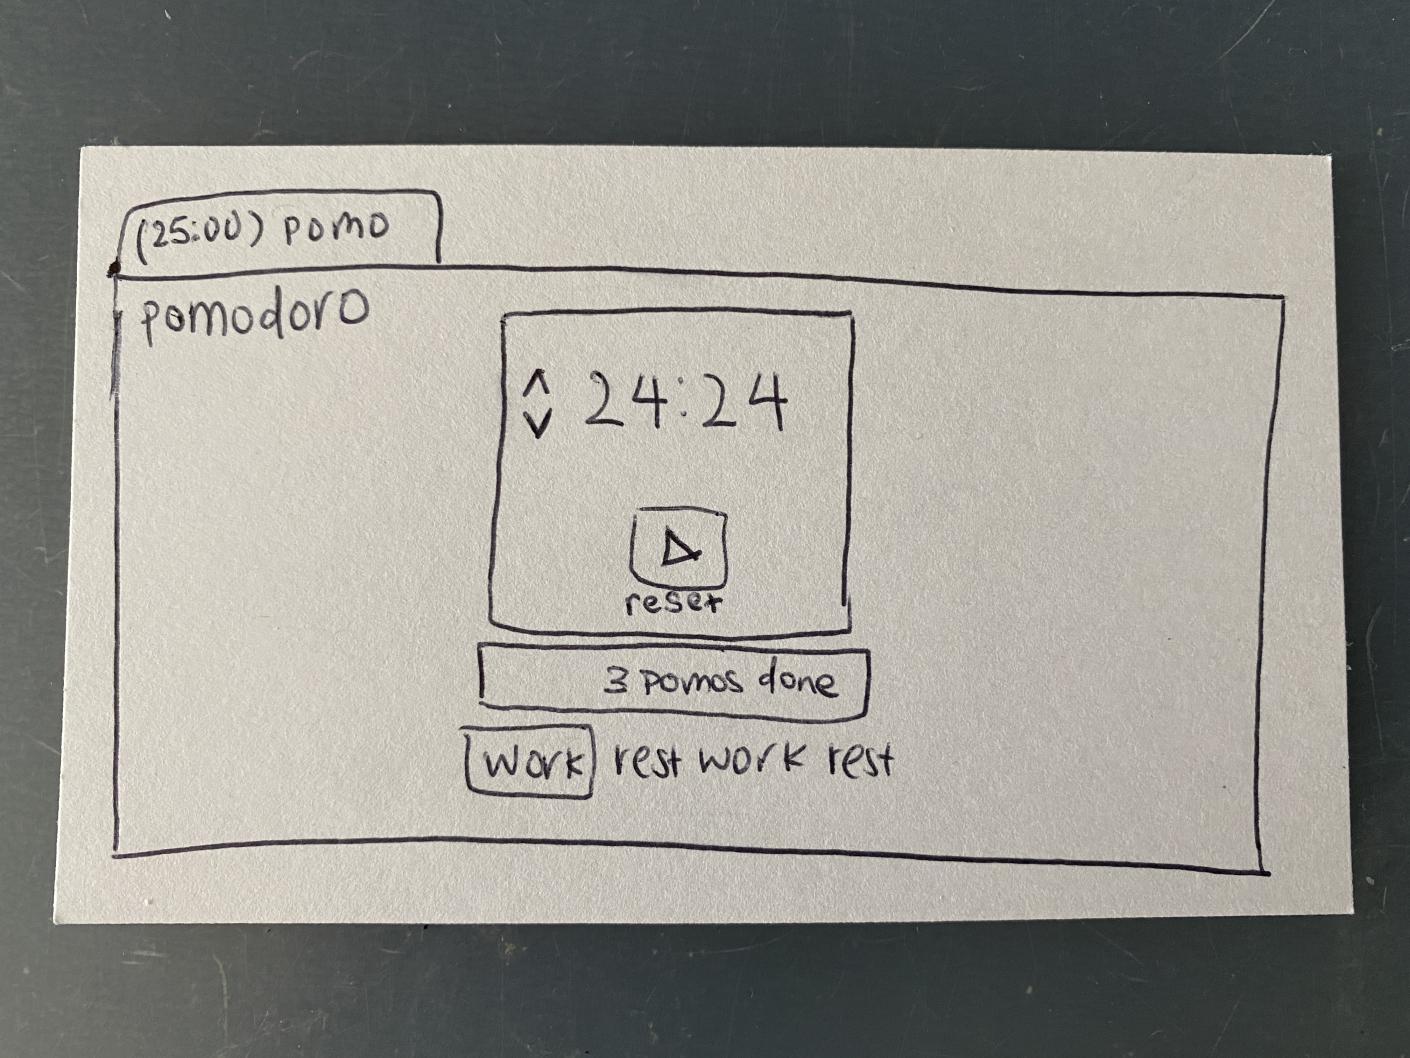 (25:00) pomo
pomodoro
24:24
reset
3 pomos done
work rest work rest